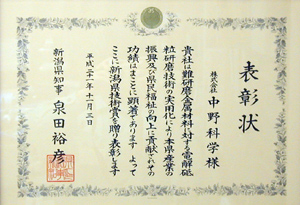 表彰状
株式会社
中野科学様
貴社は難研磨金属材料に対する電解砥
粒研磨技術の実用化により本県産業の
振興及び県民福祉の向上に貢献されその
功績はまことに顕著であります よって
ここに新潟県技術賞を贈り表彰します
平成二十一年十一月三日
新潟県知事 泉田裕彦